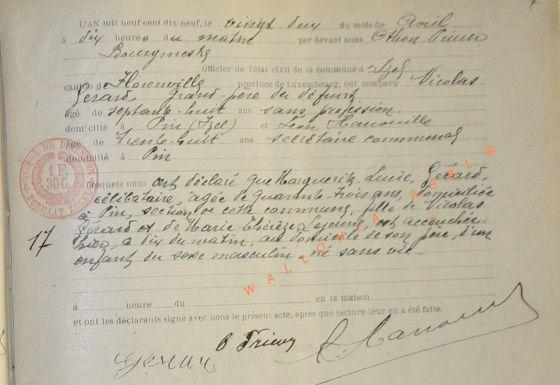 L'AN mil neuf cent dix-neuf, le vingt deux du mois de Avril
à dix heures du matin par devant nous Othon Prieur
Bourgmestre
Officier de l'état civil de la commune d'Izel
canton de Florenville province de Luxembourg, ont comparu Nicolas
Gérard, grand père du défunt
âgé de septante huit ans sans profession
domicilié à Pin (Izel) et Léon
âgé de trente huit ans secrétaire communal
domicilié à Pin
Lesquels nous ont déclaré que Marguerite Lucie, Gérard,
célibataire, agée de quarante trois ans, domiciliée
à Pin, section de cette commune, fille de Nicolas
Gérard et de Marie Thérèse est accouchée
hier, à dix du matin, au domicile de son père, d'un
enfant du sexe masculin né sans vie.
17
à heure du en la maison
et ont les déclarants signé avec nous le présent acte, après que lecture leur en a été faite.
O Prieur
Gérard
1 F.
30 C.
WALLONIA ASBL ©